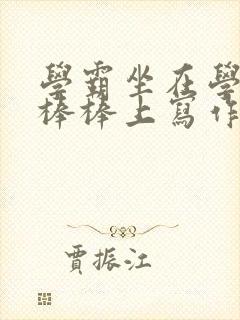 學霸坐在學
棒棒上寫作
賈振江